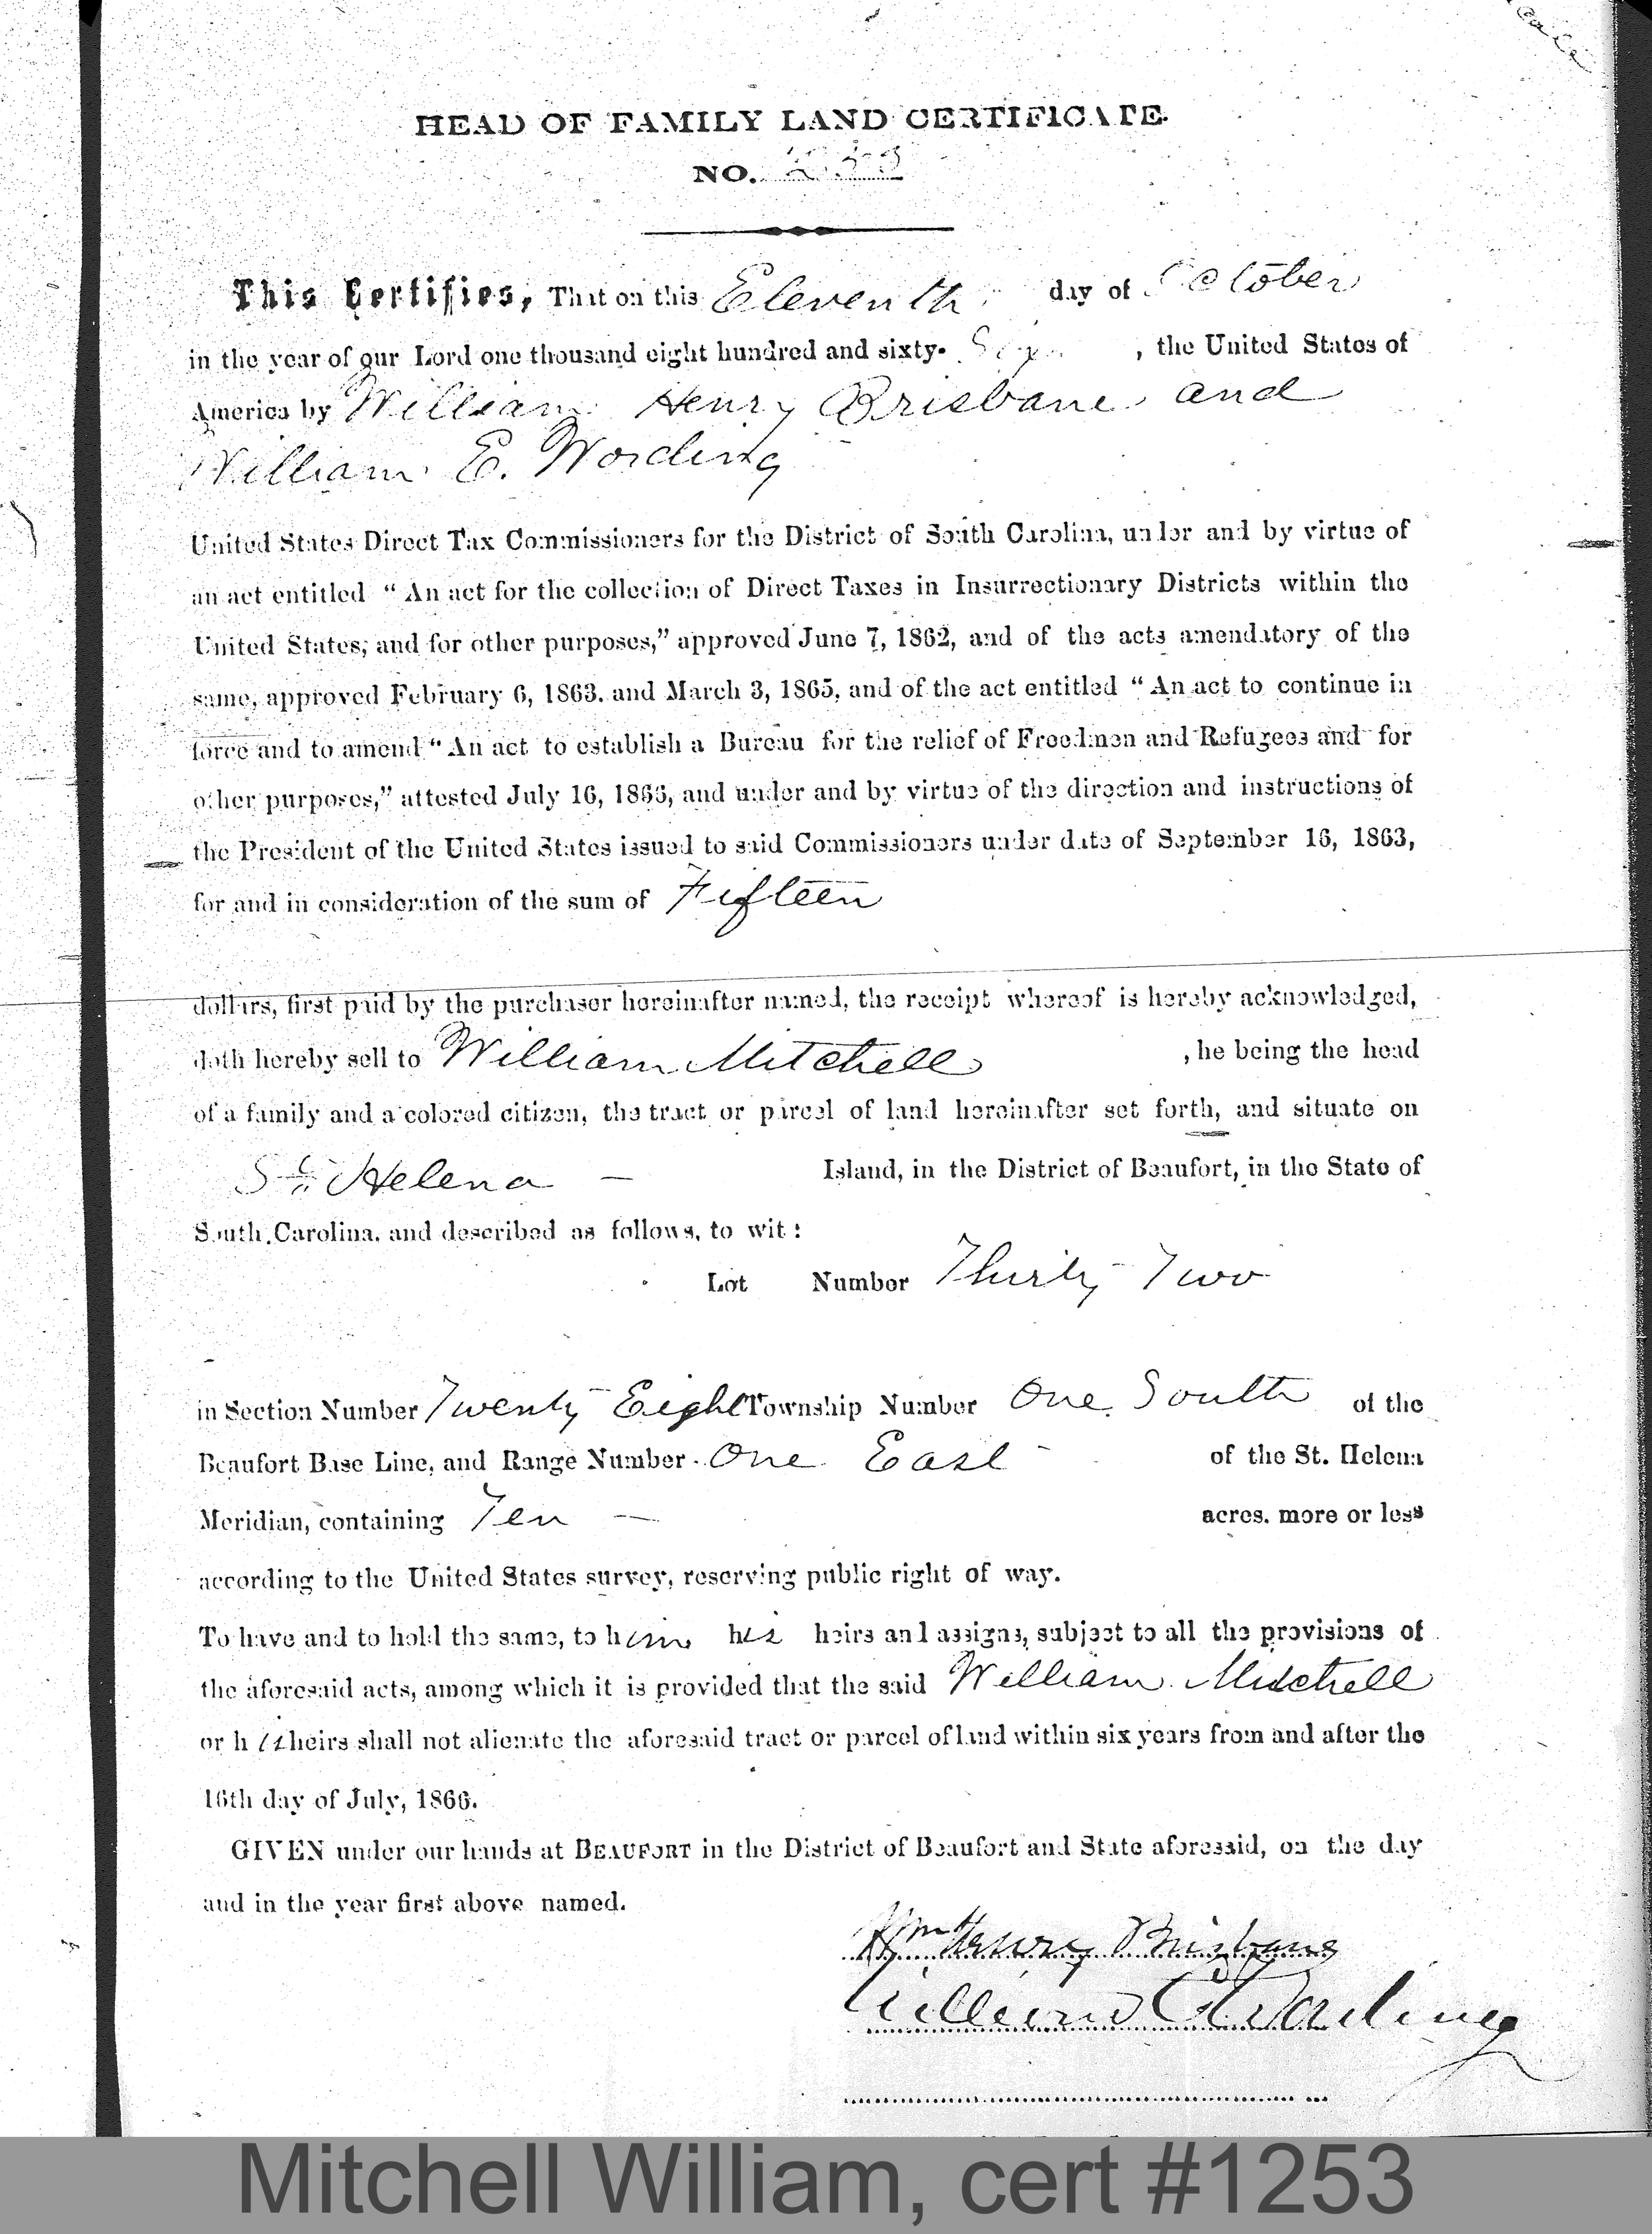 HEAD OF FAMILY LAND CERTIFICATE.
NO. 1253
This Certifies, That on this Eleventh day of October
in the year of our Lord one thousand eight hundred and sixty- Six , the United States of
America by William Henry Brisbane and
William E. Wording
United States Direct Tax Commissioners for the District of South Carolina, under and by virtue of
an act entitled "An act for the collection of Direct Taxes in Insurrectionary Districts within the
United States, and for other purposes," approved June 7, 1862, and of the acts amendatory of the
same, approved February 6, 1863. and March 3, 1865, and of the act entitled "An act to continue in
force and to amend "An act to establish a Bureau for the relief of Freedmen and Refugees and for
other purposes," attested July 16, 1866, and under and by virtue of the direction and instructions of
the President of the United States issued to said Commissioners under date of September 16, 1863,
for and in consideration of the sum of Fifteen
dollars, first paid by the purchaser hereinafter named, the receipt whereof is hereby acknowledged,
doth hereby sell to William Mitchell , he being the head
of a family and a colored citizen, the tract or parcel of land hereinafter set forth, and situate on
St. Helena — Island, in the District of Beaufort, in the State of
South Carolina, and described as follows, to wit:
Lot Number Thirty Two
in Section Number Twenty Eight Township Number One South of the
Beaufort Base Line, and Range Number One East of the St. Helena
Meridian, containing Ten — acres. more or less
according to the United States survey, reserving public right of way.
To have and to hold the same, to him his heirs and assigns, subject to all the provisions of
the aforesaid acts, among which it is provided that the said William Mitchell
or his heirs shall not alienate the aforesaid tract or parcel of land within six years from and after the
16th day of July, 1866.
GIVEN under our hands at BEAUFORT in the District of Beaufort and State aforesaid, on the day
and in the year first above named.
Wm Henry Brisbane
William E. Wording
Mitchell William, cert #1253